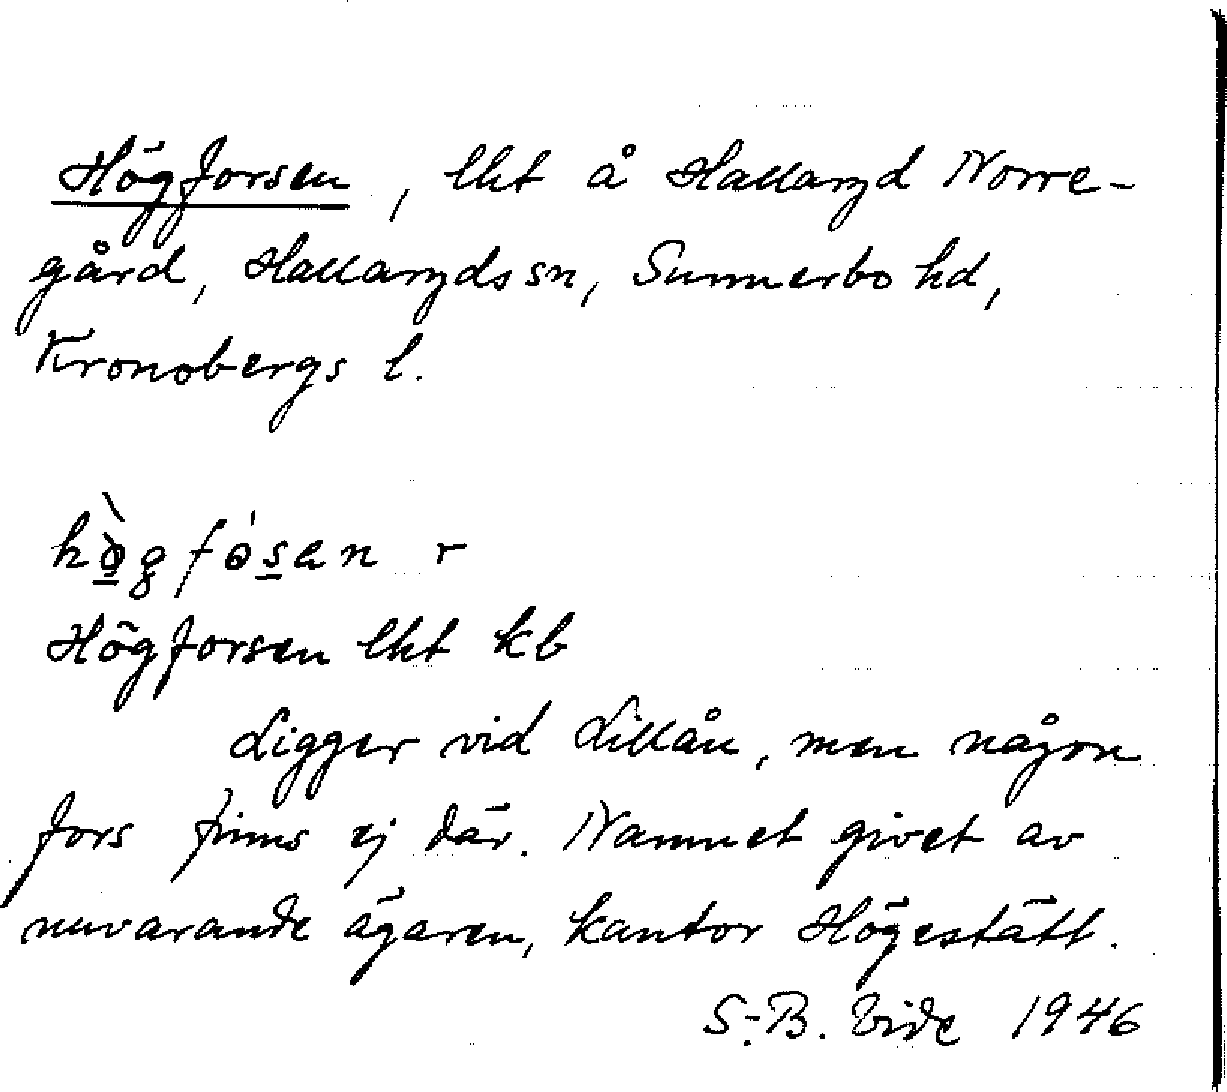 Högforsen, lht å Hallaryd Norre-
gård, Hallaryds sn, Sunnerbo hd,
Kronobergs l.
r
Högforsen lht kb
Ligger vid Lillån, men någon
fors finns ej där. Namnet givet av
nuvarande ägaren, kantor Högestätt.
S.-B. Vide 1946